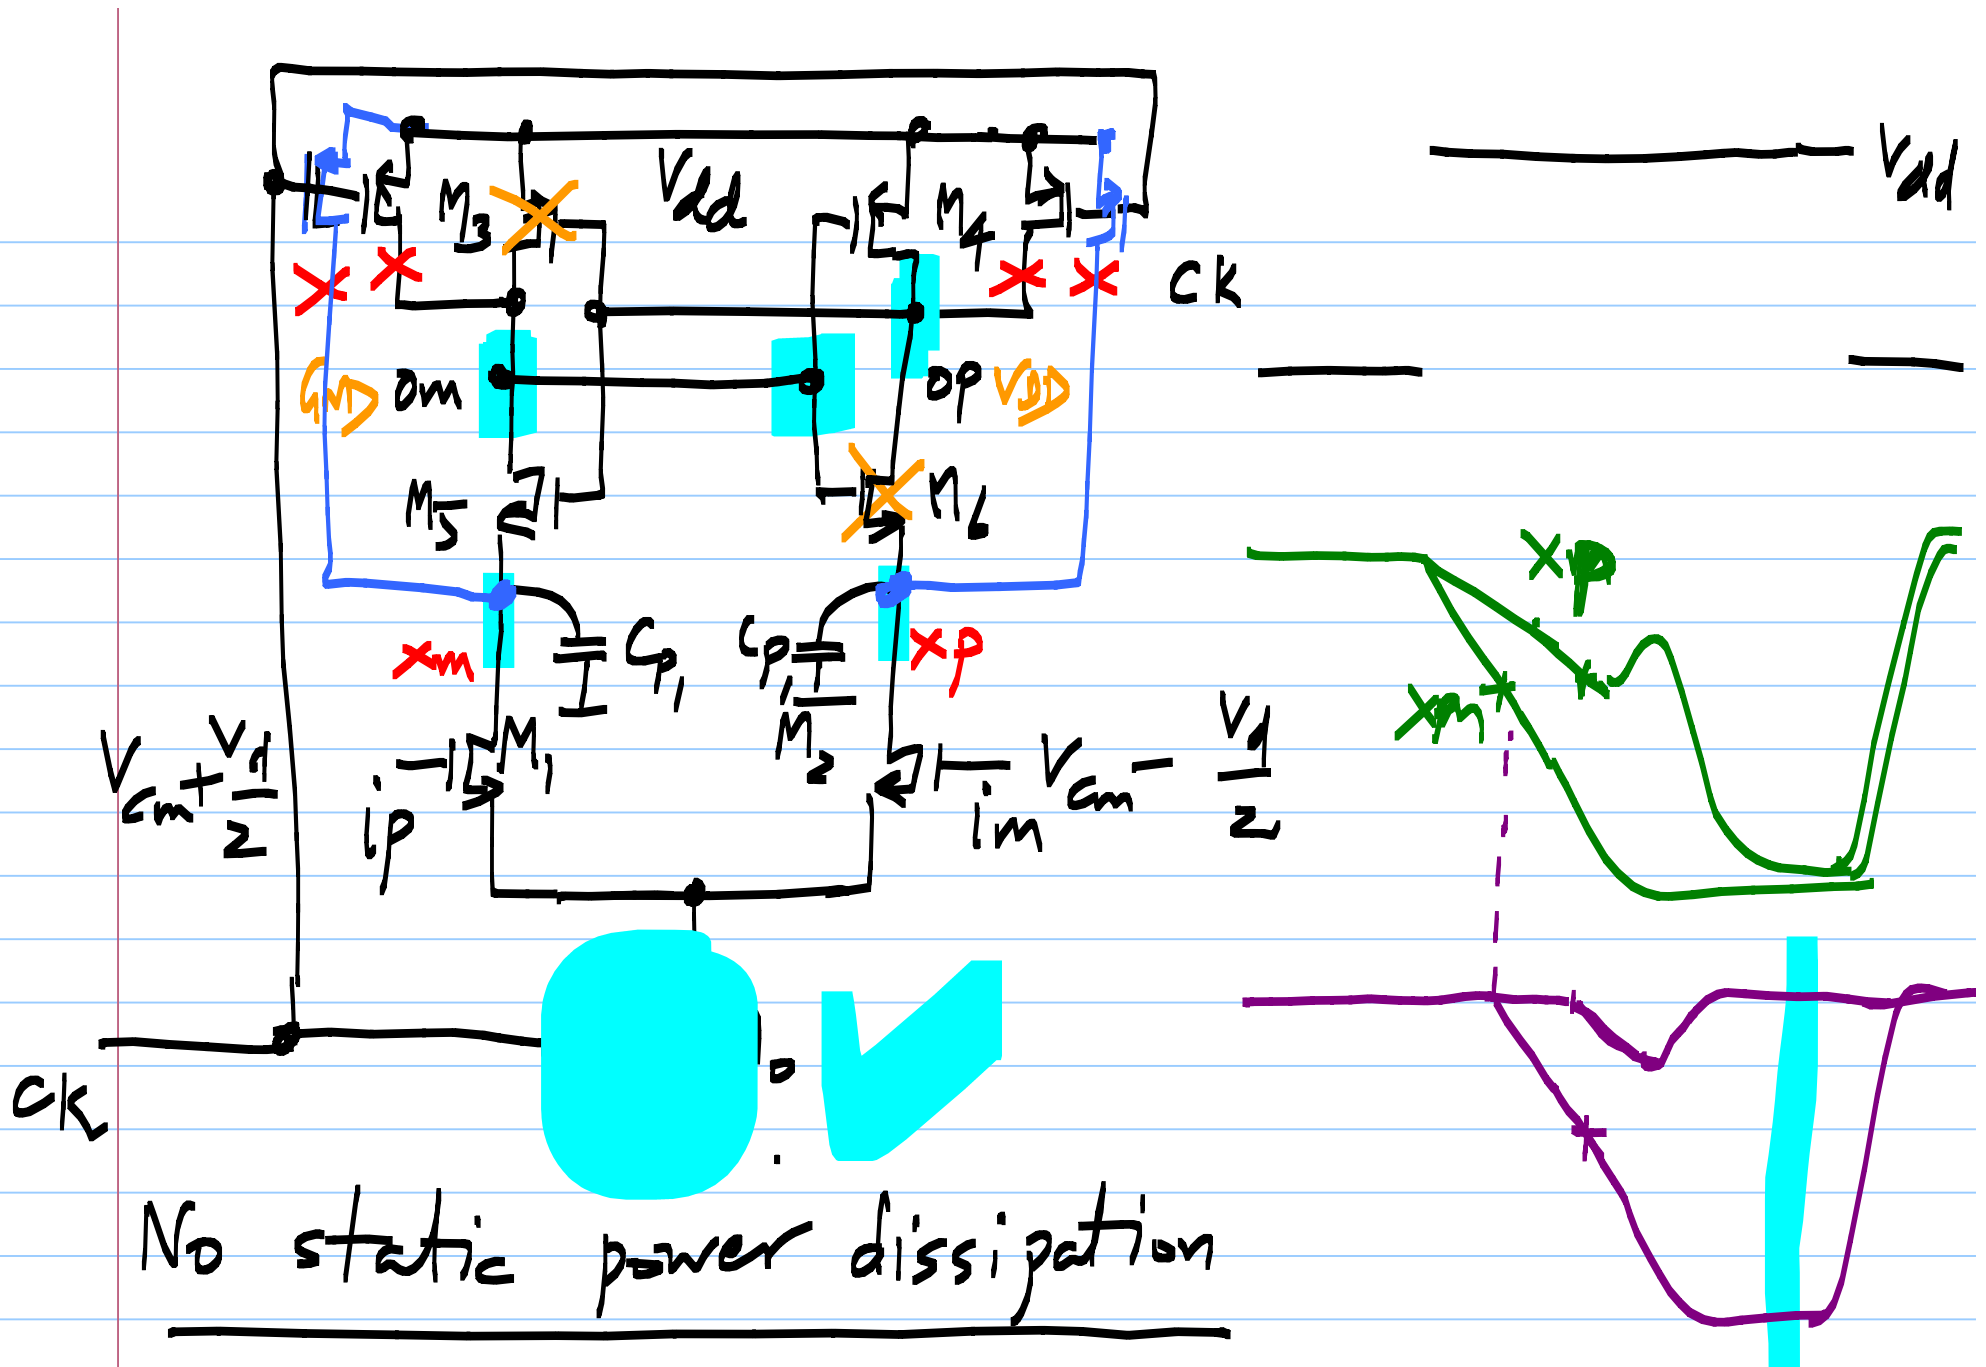 Vdd
M3
Vdd
M4
CK
GND
om
op
VDD
M5
M6
xp
xm
Cp1
Cp1
xm
xp
Vcm + Vd/2
ip
M1
M2
im
Vcm - Vd/2
CK
No static power dissipation